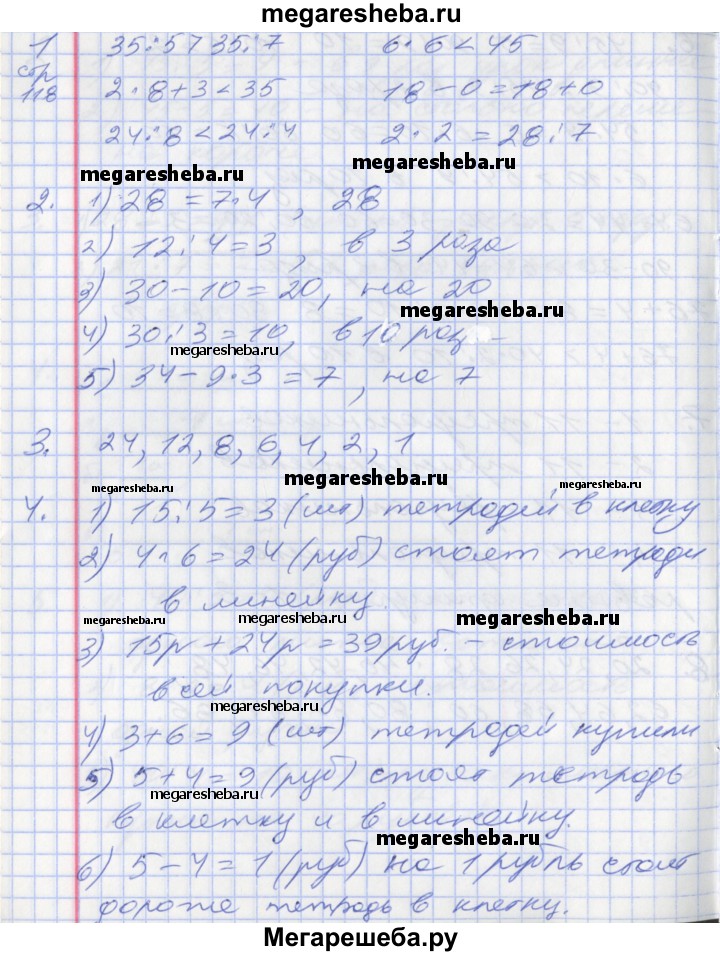 megaresheba.ru
1 35:5 > 35:7 6·6 < 45
стр
118 2·8+3 < 35 18-0=18+0
24:8 < 24:4 2·2=28:7
megaresheba.ru megaresheba.ru
2. 1) 28=7·4, 28
2) 12:4=3, в 3 раза
3) 30-10=20, на 20
megaresheba.ru
4) 30:3=10, в 10 раз
megaresheba.ru
5) 34-9·3=7, на 7
3. 24, 12, 8, 6, 4, 2, 1
megaresheba.ru megaresheba.ru megaresheba.ru
4. 1) 15:5=3 (шт) тетрадей в клетку
2) 4·6=24 (руб) стоят тетради
в линейку.
megaresheba.ru megaresheba.ru megaresheba.ru
3) 15р+24р=39руб. - стоимость
всей покупки.
megaresheba.ru
4) 3+6=9 (шт) тетрадей купили
5) 5+4=9 (руб) стоят тетрадь
megaresheba.ru
в клетку и в линейку.
megaresheba.ru
6) 5-4=1 (руб) на 1 рубль стоит
дороже тетрадь в клетку.
Мегарешеба.ру